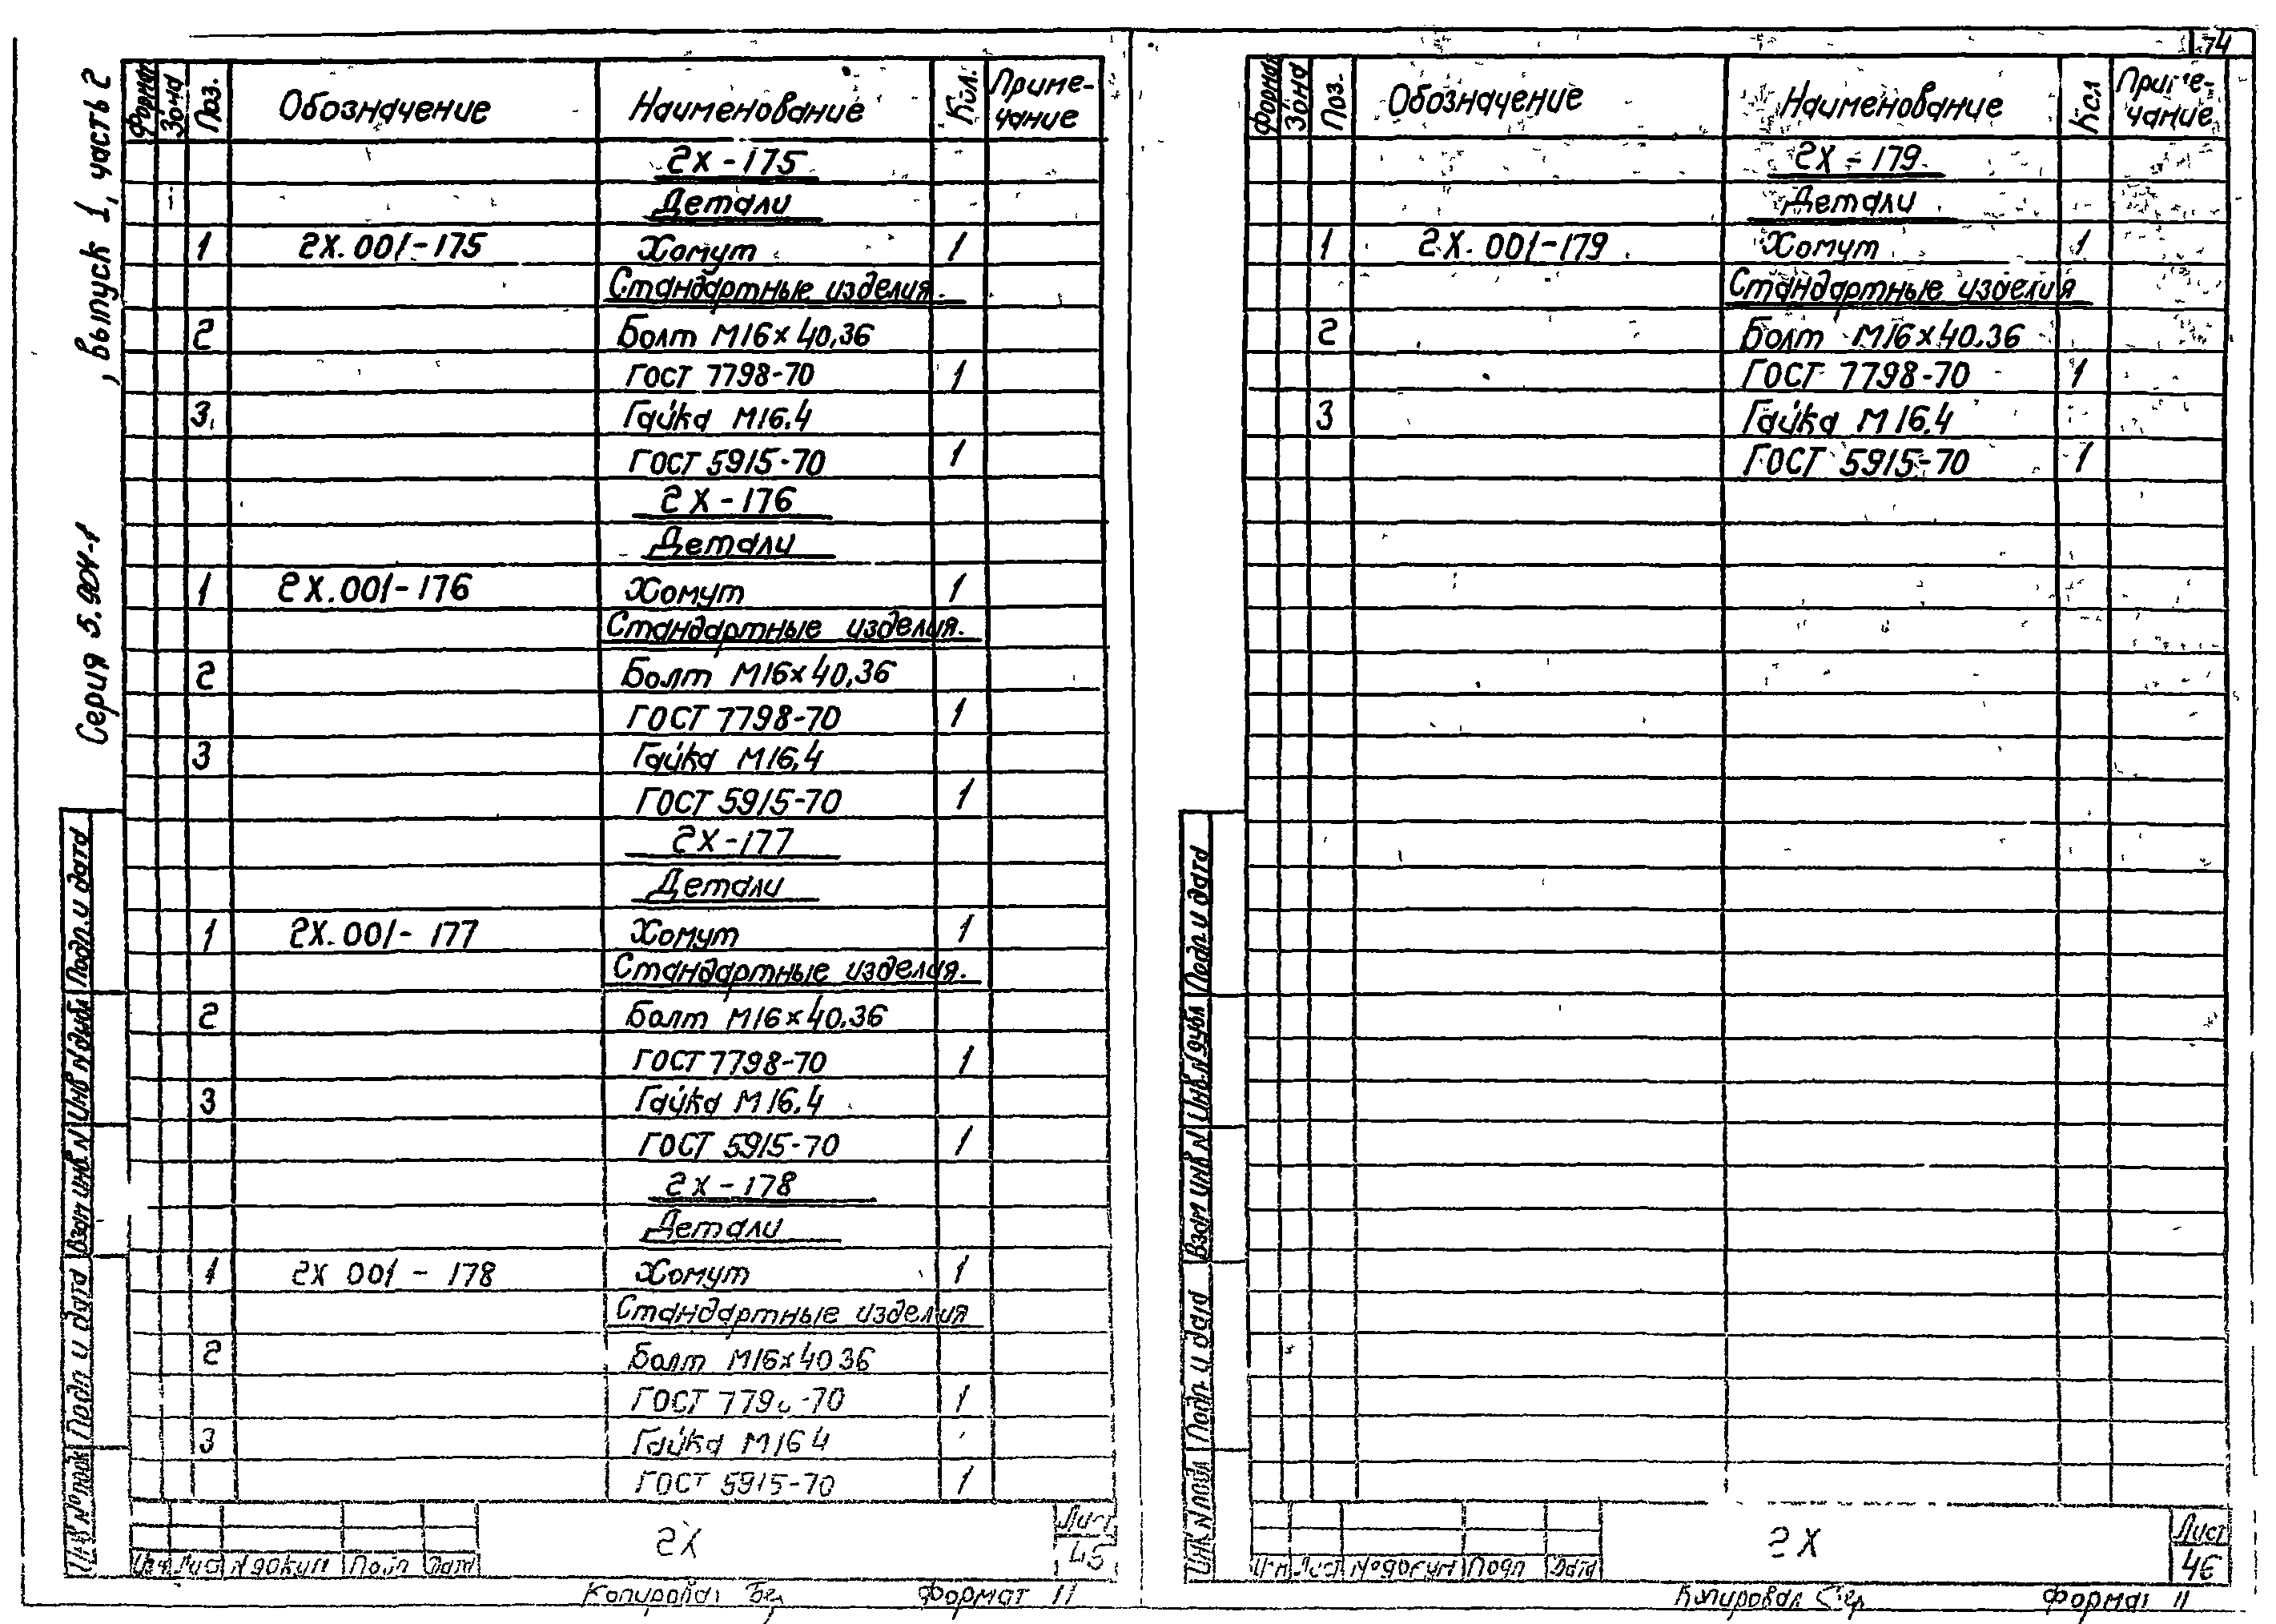 74
Серия 5.904-1 , выпуск 1, часть 2
Формат Зона Поз. Обозначение Наименование Кол. Примечание
2Х-175
Детали
1 2Х.001-175 Хомут 1
Стандартные изделия.
2 Болт М16х40,36
ГОСТ 7798-70 1
3 Гайка М16.4
ГОСТ 5915-70 1
2Х-176
Детали
1 2Х.001-176 Хомут 1
Стандартные изделия.
2 Болт М16х40,36
ГОСТ 7798-70 1
3 Гайка М16.4
ГОСТ 5915-70 1
2Х-177
Детали
1 2Х.001-177 Хомут 1
Стандартные изделия.
2 Болт М16х40.36
ГОСТ 7798-70 1
3 Гайка М16.4
ГОСТ 5915-70 1
2Х-178
Детали
1 2Х 001-178 Хомут 1
Стандартные изделия
2 Болт М16х40 36
ГОСТ -70 1
3 Гайка М16 4
ГОСТ 5915-70 1
Инв № подл Подп и дата Взам инв. N Инв N дубл Подп. и дата
Изм Лист N докум Подп Дата
2Х
Лист
45
Копировал Формат 11
Формат Зона Поз. Обозначение Наименование Кол Примечание
2Х-179
Детали
1 2Х.001-179 Хомут 1
Стандартные изделия
2 Болт М16х40.36
ГОСТ 7798-70 1
3 Гайка М16.4
ГОСТ 5915-70 1
Инв N подл Подп. и дата Взам инв N Инв.N дубл Подп. и дата
Изм Лист № докум Подп Дата
2Х
Лист
46
Копировал Формат 11